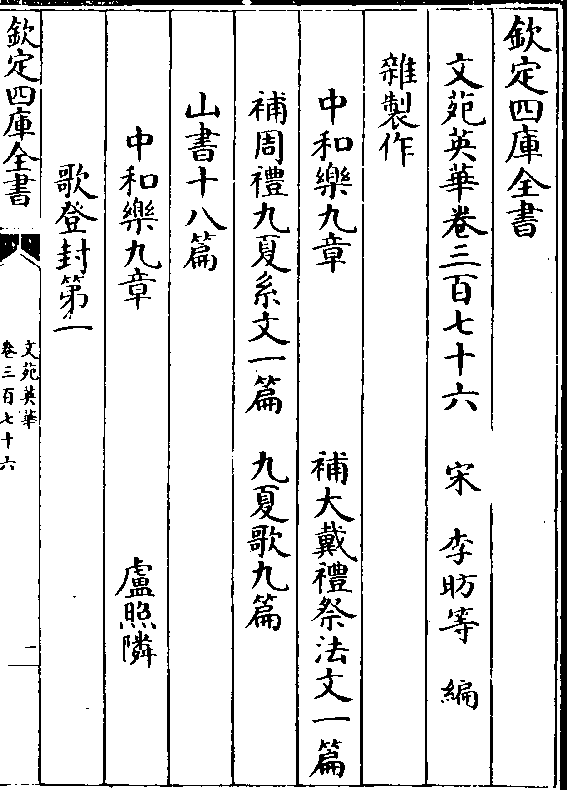 欽定四庫全書
文苑英華卷三百七十六　宋　李昉等　編
雜製作
中和樂九章　補大戴禮祭法文一篇
補周禮九夏系文一篇　九夏歌九篇
山書十八篇
中和樂九章　盧照隣
歌登封第一
欽定四庫全書
文苑英華
卷三百七十六
一